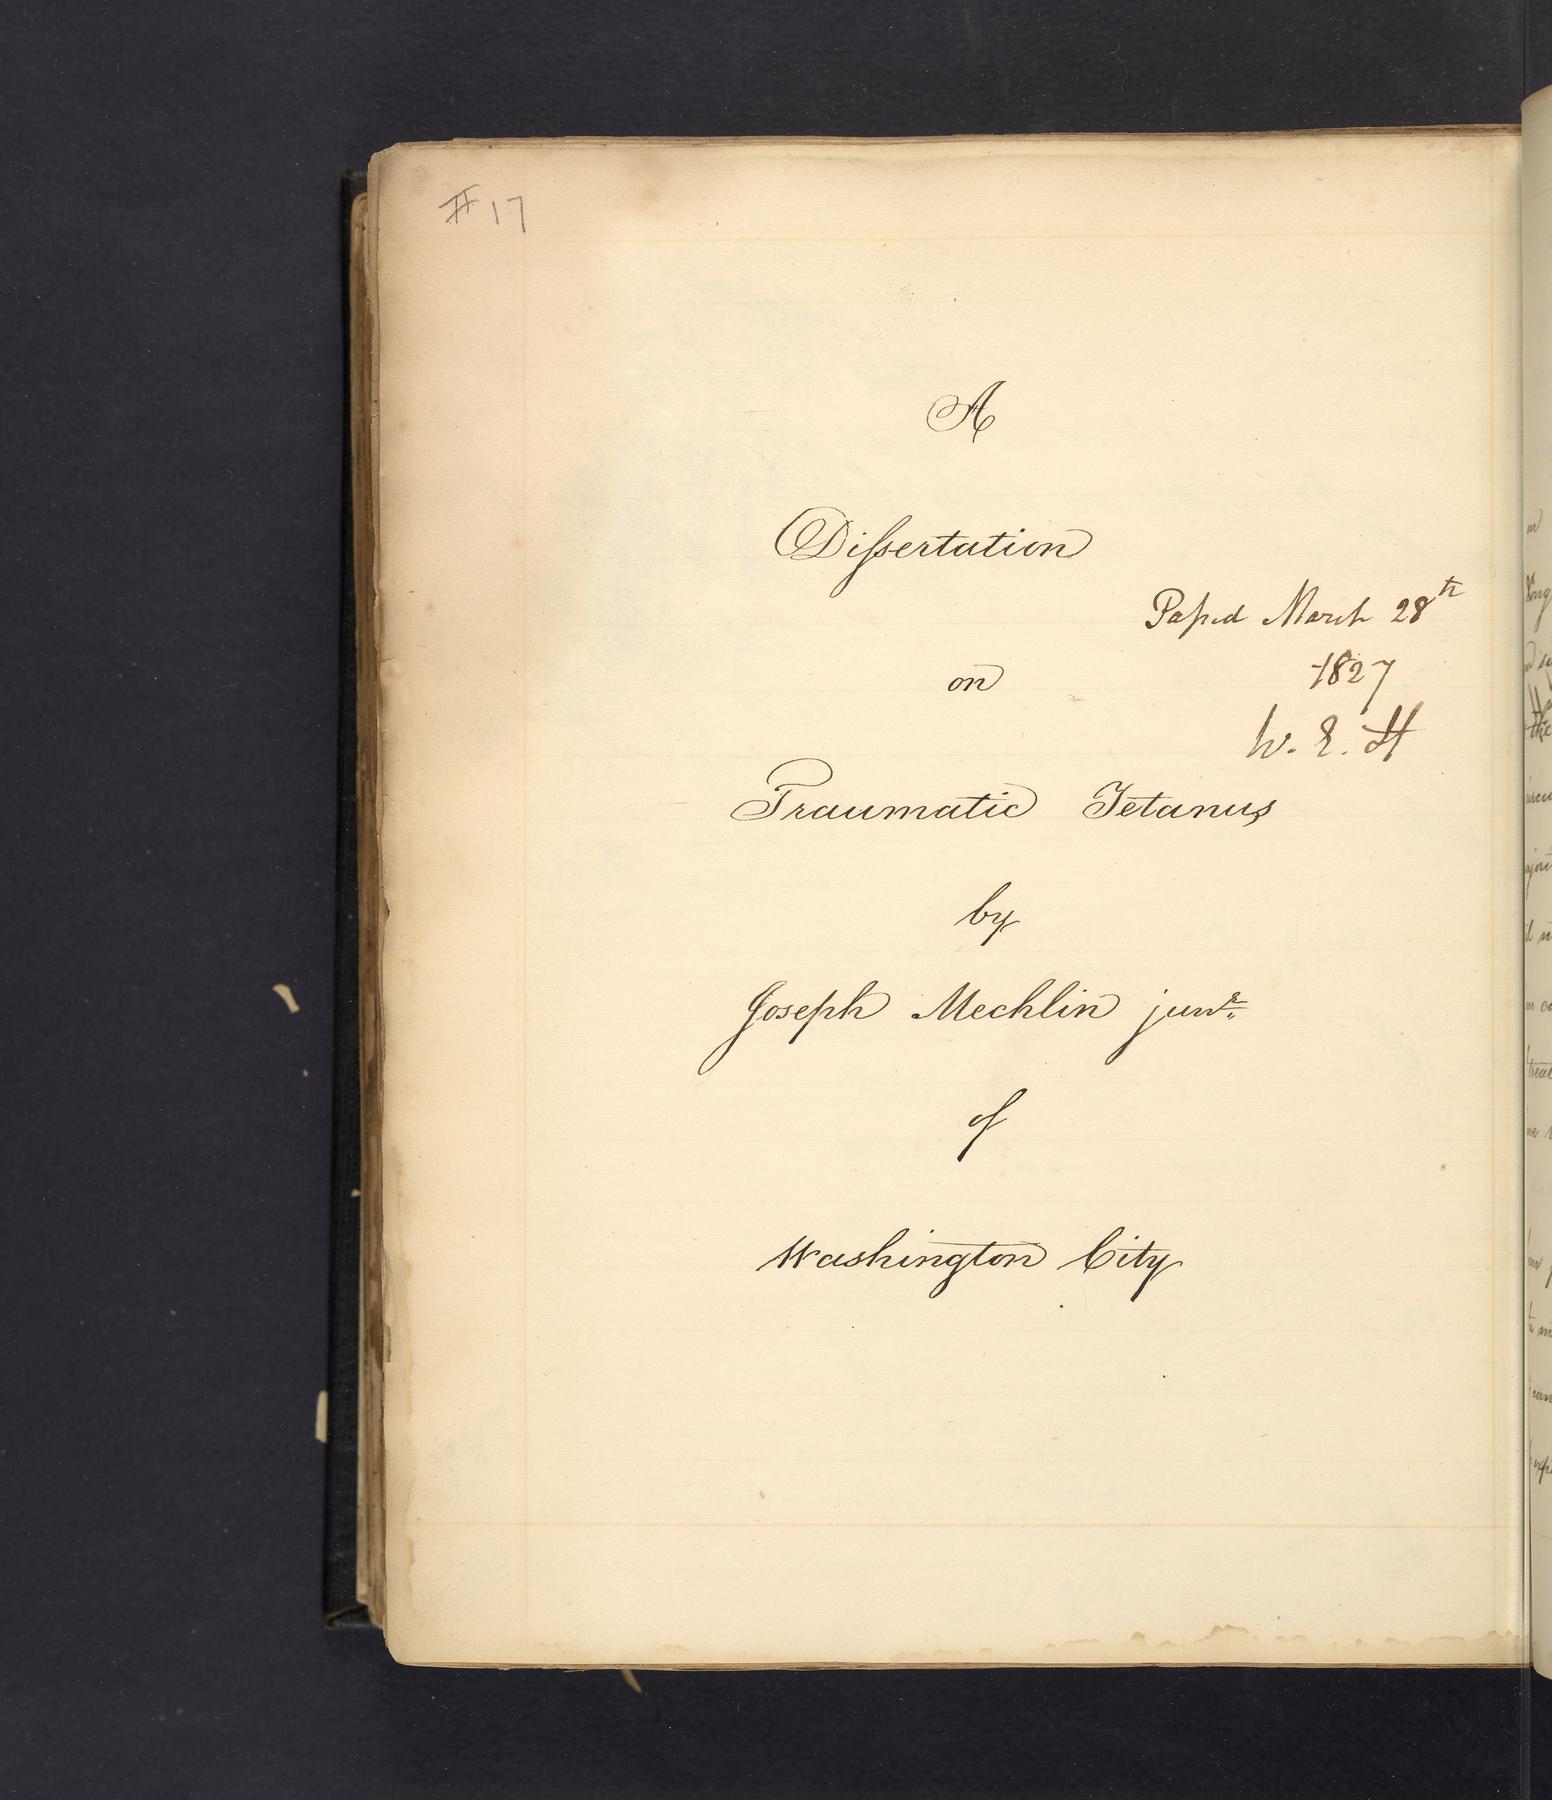 # 17
A
Dissertation
Passed March 28th
on
1827
W. E. H
Traumatic Tetanus
by
Joseph Mechlin junr.
of
Washington City